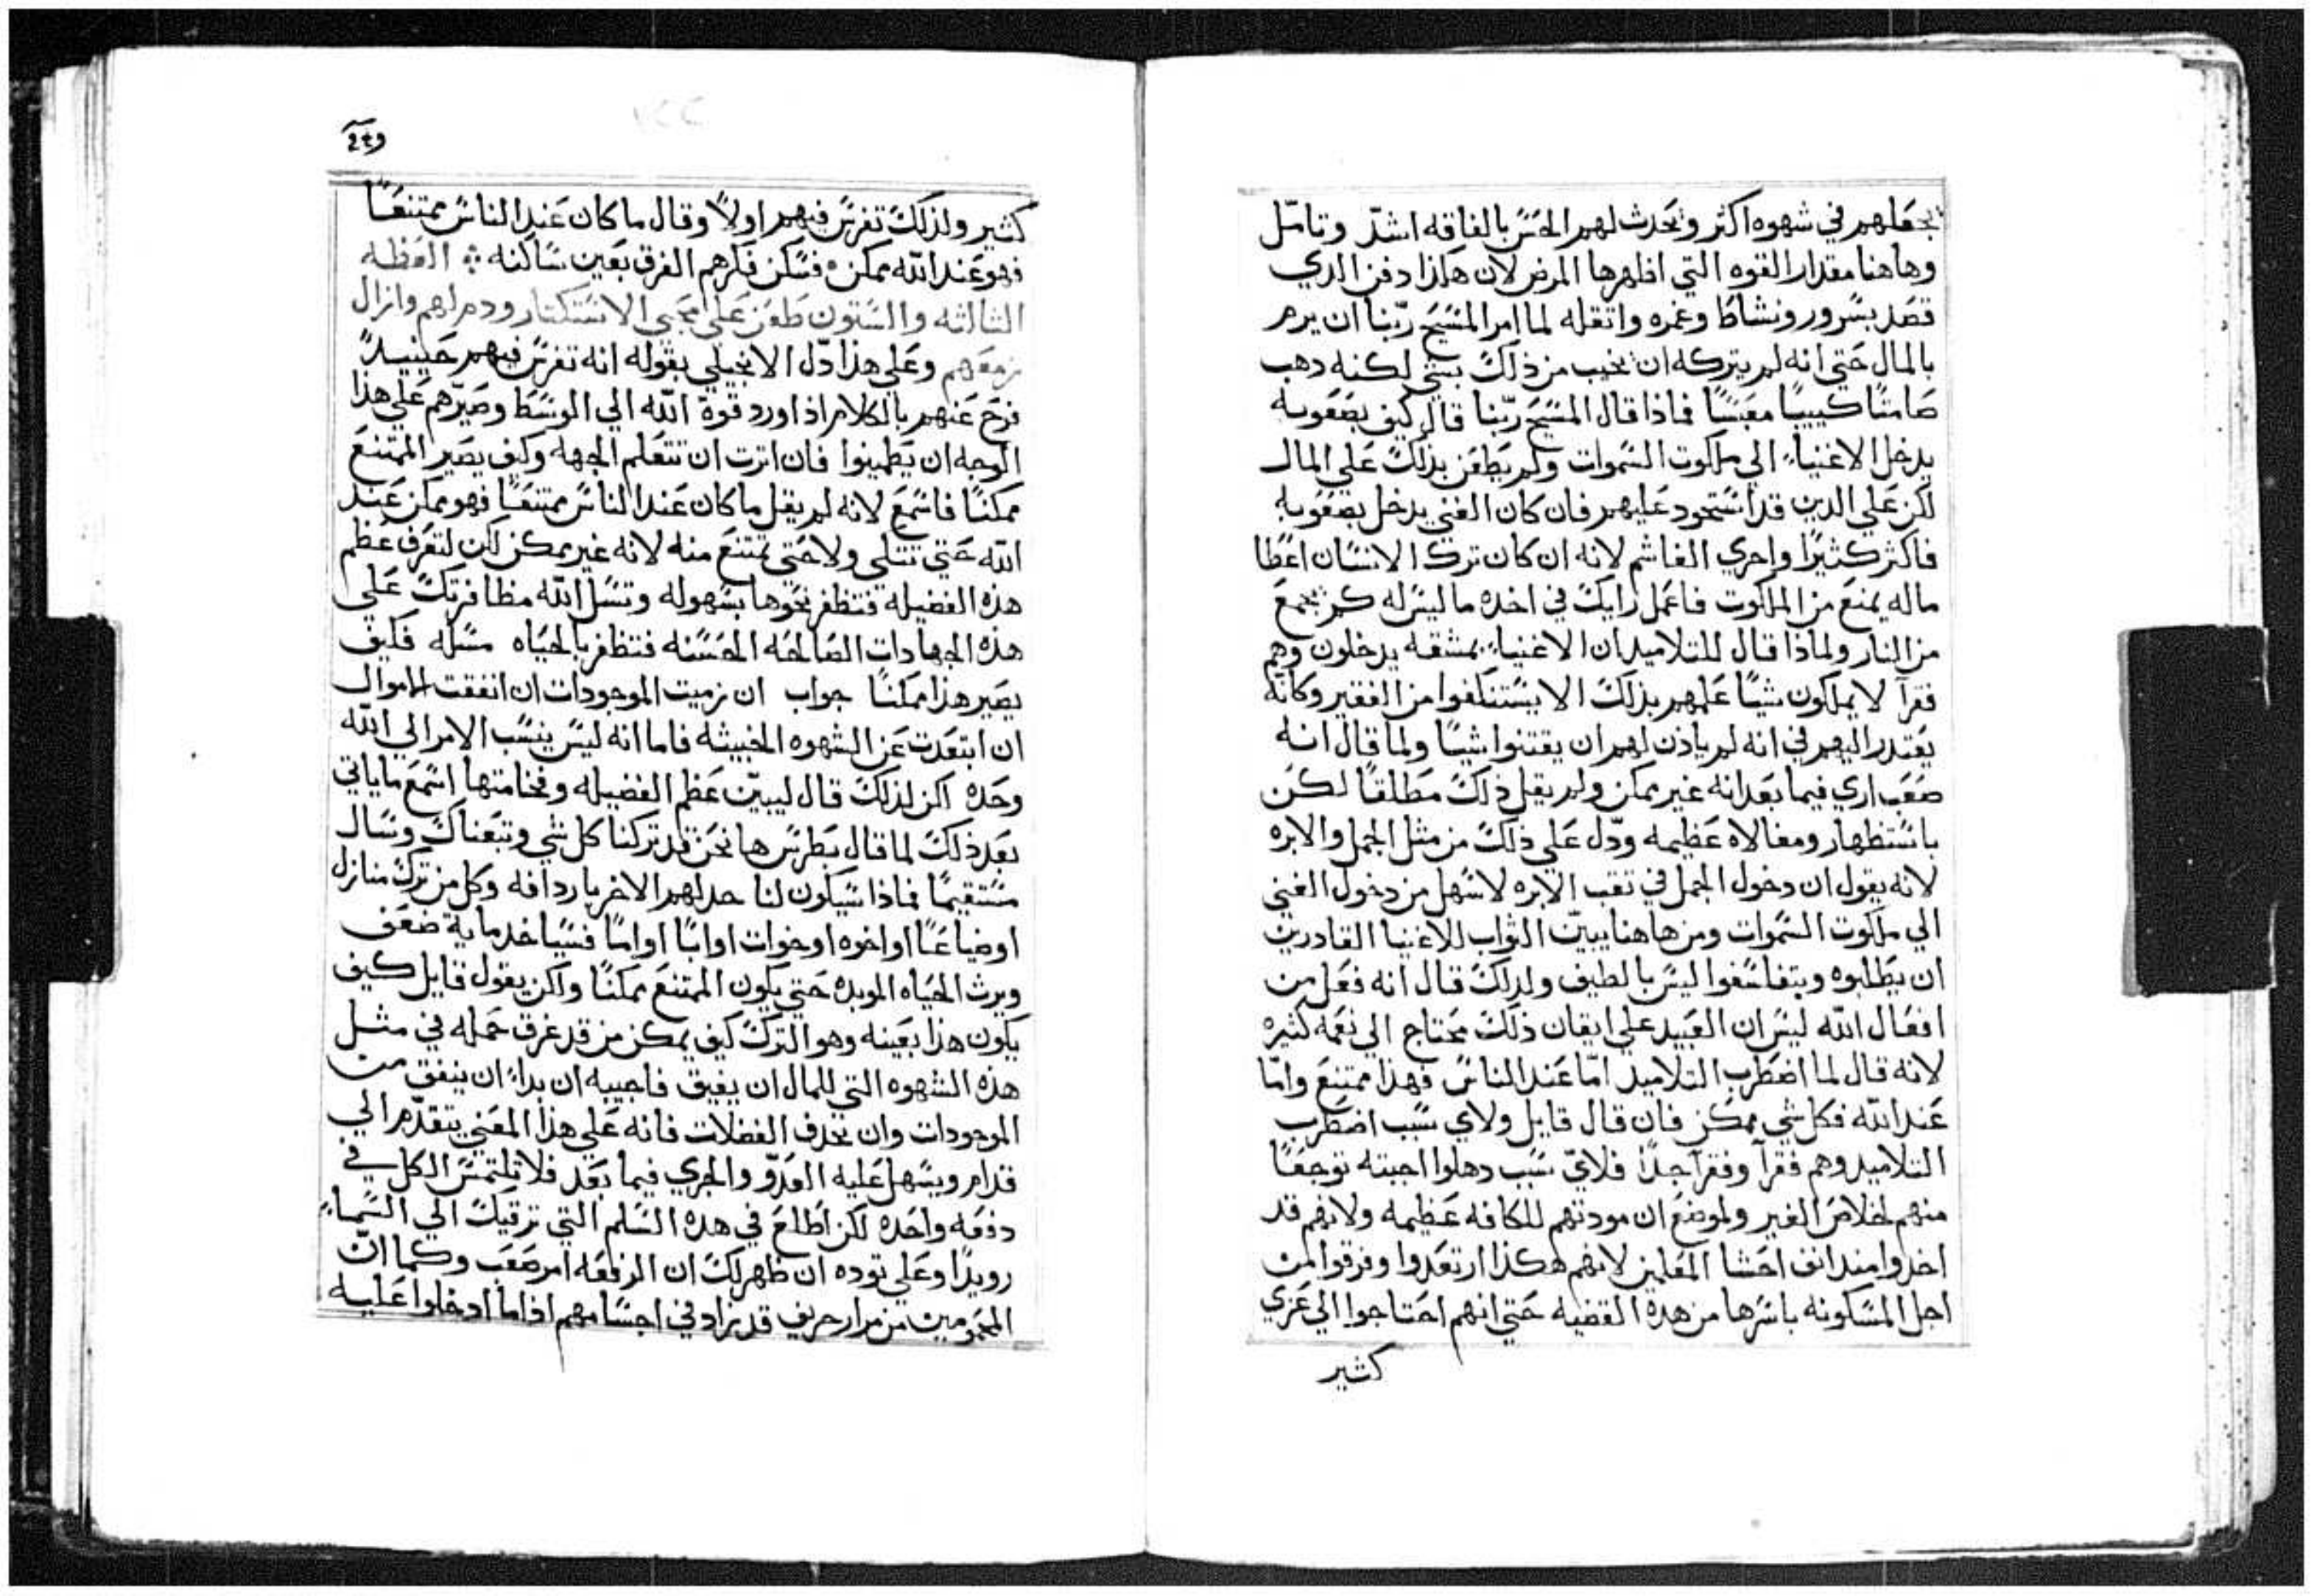 يجعلهم في شهوه اكثر ويحدث لهم الحس بالفاقه اشدّ وتامّل
وهاهنا مقدار القوه التي اظهرها المرض لان هكذا دفن الدي
قصد بسرور ونشاط وغمره واتقله لما امر المسيح ربّنا ان يرم
بالمال حتي انه لم يتركه ان يجيب من ذلك بشي لكنه دهب
صامتًا كييبًا معبسًا فماذا قال المسيح ربّنا قال كيف بصعوبه
يدخل الاغنياء الي ملكوت السموات ولم يطعن بذلك علي المال
لكن علي الدين قد استحود عليهم فان كان الغني يدخل بصعوبه
فاكثر كثيرًا واحري الغاشم لانه ان كان ترك الانسان اعطا
ماله يمنع من الملكوت فاعمل رايك في اخده ما ليس له كم يجمع
من النار ولماذا قال للتلاميد ان الاغنياء بمشقه يدخلون وهم
فقرآ لا يملكون شيًا علمهم بذلك الا يستنكفوا من الفقير وكانّه
يعتدر اليهم في انه لم ياذن لهم ان يقتنوا شيًا ولما قال انه
صعب اري فيما بعد انه غير ممكن ولم يقل ذلك مطلقًا لكن
باستظهار ومغالاه عظيمه ودّل علي ذلك من مثل الجمل والابره
لانه يقول ان دخول الجمل في تقب الابره لاسهل من دخول الغني
الي ملكوت السموات ومن هاهنا يبيّن التواب للاغنيا القادرين
ان يطلبوه ويتفلسفوا ليس بالطيف ولدلك قال انه فعل من
افعال الله ليس ان العبيد علي ايقان ذلك محتاج الي نعمه كثيره
لانه قال لما اضطرب التلاميد امّا عند الناس فهذا ممتنع وامّا
عند الله فكل شي ممكن فان قال قايل ولاي سبب اضطرب
التلاميد وهم فقرآ وفقرآ جدًا فلايّ سبب دهلوا اجبته توجعًا
منهم لخلاص الغير ولموضع ان مودتهم للكافه عظيمه ولانهم قد
اخدوا مند انف احشا المعلمين لانهم هكذا ارتعدوا وفرقوا من
اجل المسكونه باسرها من هده القضيه حتي انهم احتاجوا الي عزي
كثير
كثير ولذلك تفرس فيهم اولًا وقال ما كان عند الناس ممتنعًا
فهو عند الله ممكن فسكن فكرهم الفرق بعين ساكنه العظه
الثالثه والستون طعن علي محبي الاستكتار ودم لهم وانزال
بزمعهم وعلي هذا دّل الانجيلي بقوله انه تفرس فيهم حينيدً
فرح عنهم بالكلام اذ اورد قوة الله الي الوسط وصيّرهم علي هذا
الوجه ان يطمينوا فان اترت ان تتعلم الجهه وكيف يصير الممتنع
ممكنًا فاسمع لانه لم يقل ما كان عند الناس ممتنعًا فهو ممكن عند
الله حتي تتلي ولا حتي تمتنع منه لانه غير ممكن لكن لتعرف عظم
هذه الفضيله فتظفر نحوها بسهوله وتسل الله مظافرتك علي
هذه الجهادات الصالحه الحسنه فتظفر بالحياه مسله فكيف
يصير هذا ممكنًا جواب ان زميت الموجودات ان انفقت الاموال
ان ابتعدت عن الشهوه الخبيثه فاما انه ليس ينسب الامر الي الله
وحده لكن لذلك قال ليبيّن عظم الفضيله وفخامتها اسمع ما ياتي
بعد ذلك لما قال بطرس ها نحن قد تركنا كل شي وتبعناك وسال
مستقيمًا فماذا سيكون لنا حد لهم الاخر بارداقه وكل من ترك منازل
او ضياعًا او اخوه او خوات او ابًا او امًا فسياخد ماية ضعف
ويرث الحياه الموبده حتي يكون الممتنع ممكنًا ولكن يقول قايل كيف
يكون هذا بعينه وهو الترك كيف يمكن من قد غرق حمله في مثل
هذه الشهوه التي للمال ان يفيق فاجيبه ان بداء ان ينفق من
الموجودات وان يحدف الفضلات فانه علي هذا المعني يتقدّم الي
قدام ويسهل عليه العدّو والجري فيما بعد فلا تلتمس الكل في
دفعه واحده لكن اطلع في هده السلم التي ترقيك الي السماء
رويدًا وعلي توده ان ظهر لك ان الرفعه امر صعب وكما انّ
المحمومين من مرار حريف قد يزاد في اجسامهم اذا ما ادخلوا عليه